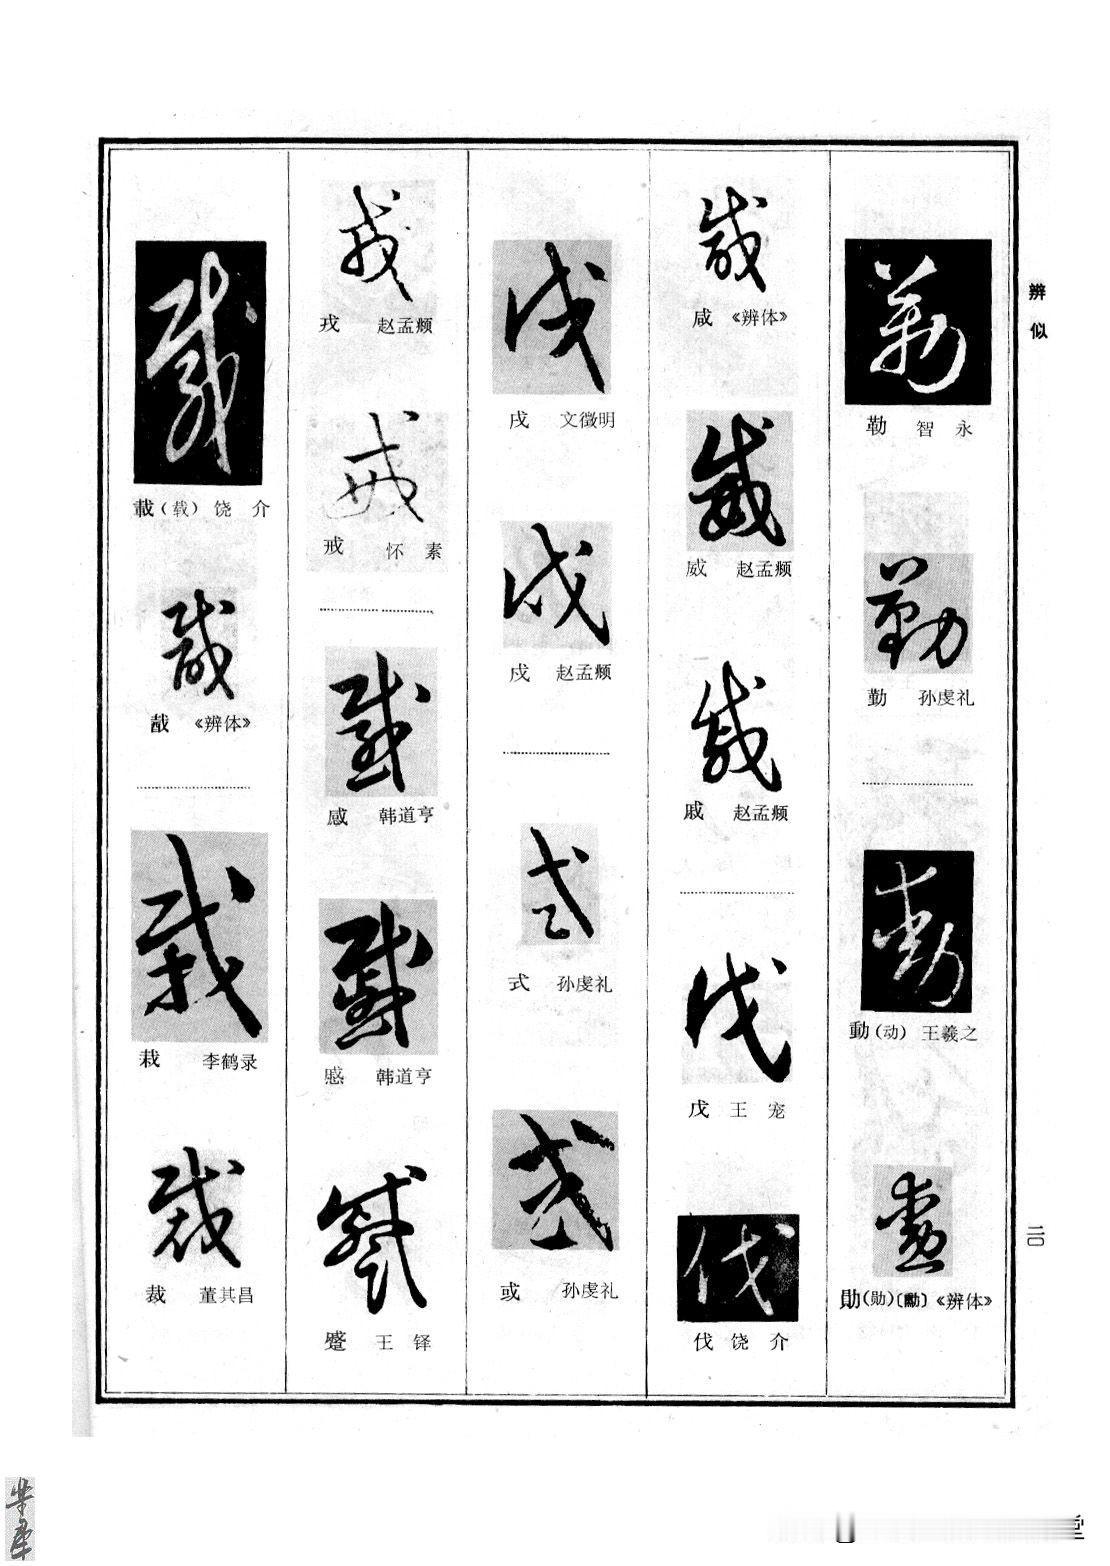 辨似
勒 智永
勤 孙虔礼
動(动) 王羲之
勛(勋)〔勳〕《辨体》
咸 《辨体》
威 赵孟頫
戚 赵孟頫
戊 王宠
伐 饶介
戌 文徵明
戍 赵孟頫
式 孙虔礼
或 孙虔礼
戎 赵孟頫
戒 怀素
感 韩道亨
慼 韩道亨
蹙 王铎
載(载) 饶介
《辨体》
栽 李鹤录
裁 董其昌
二〇